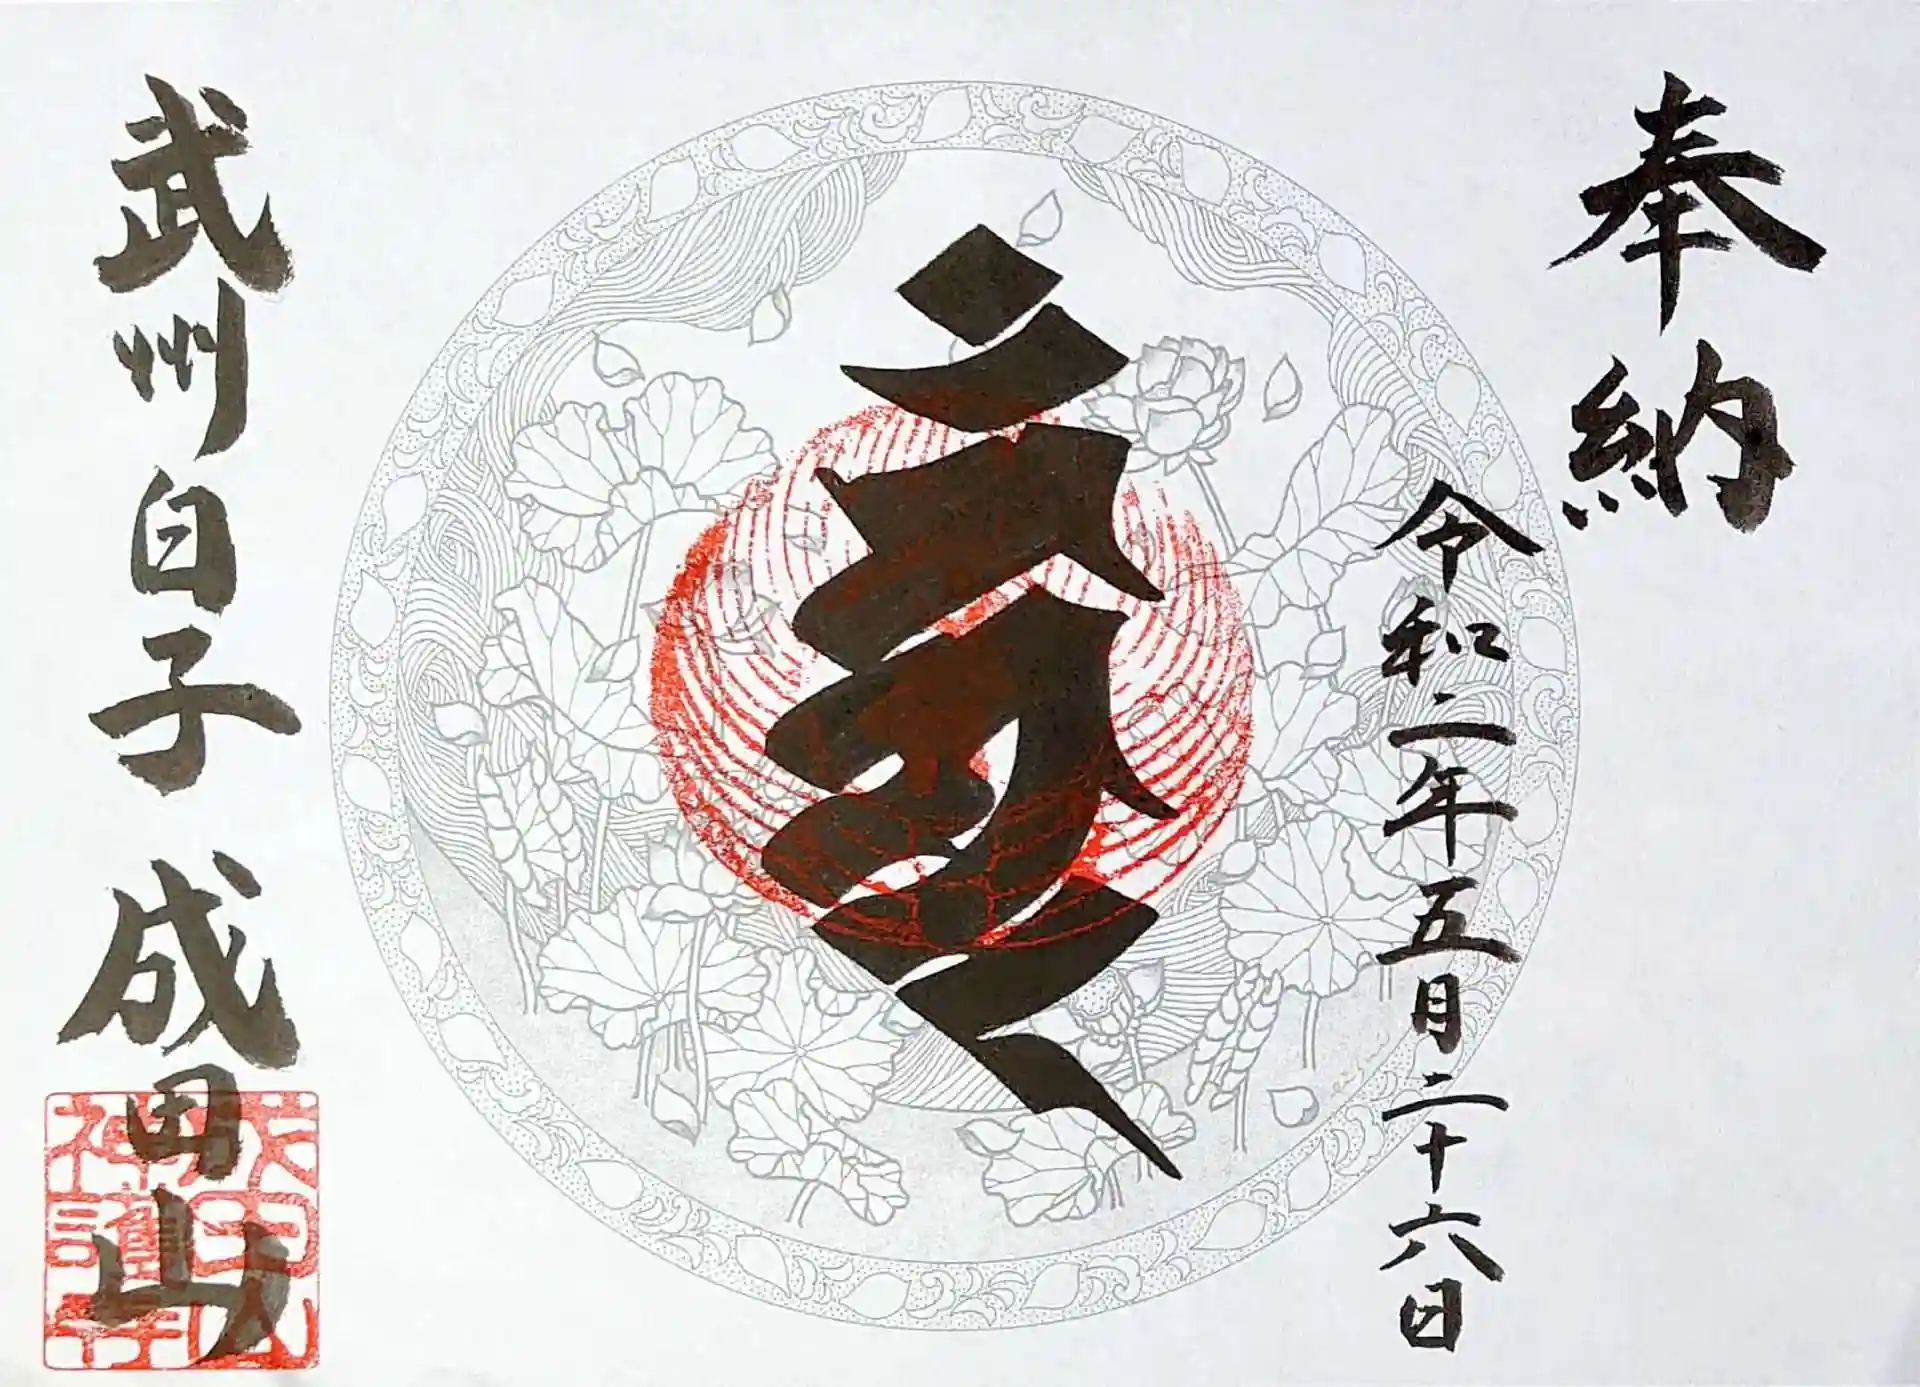 奉納
令和二年五月二十六日
武州白子 成田山